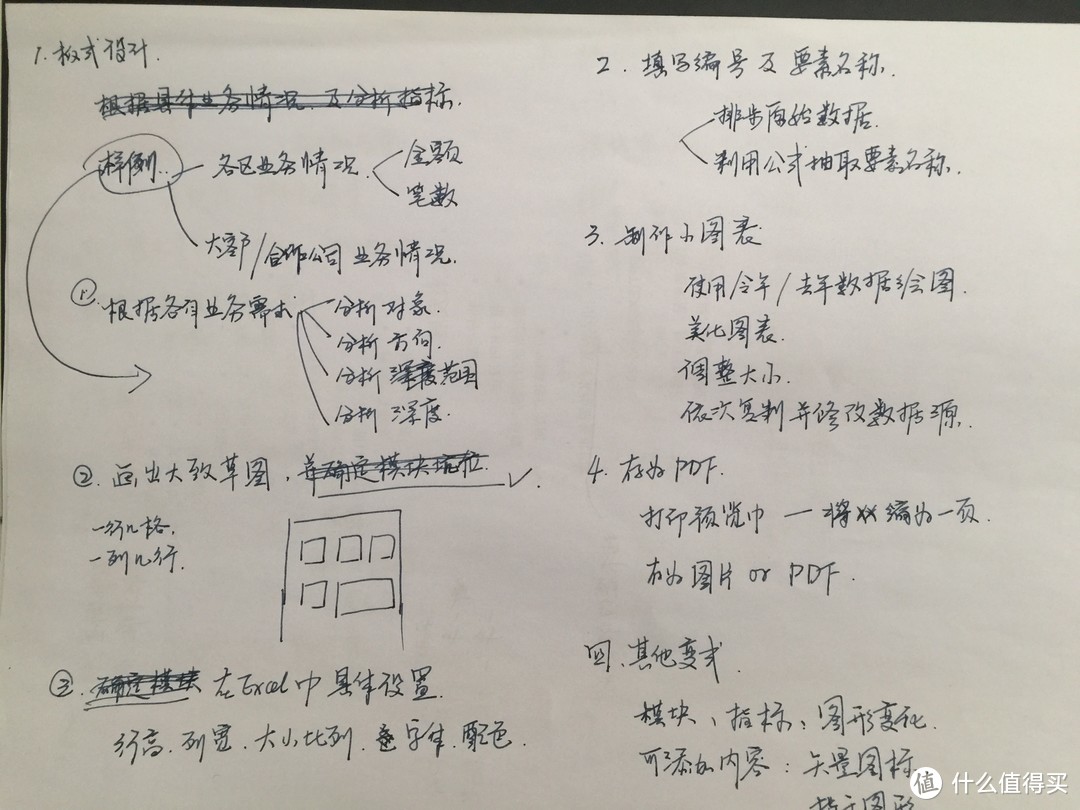 1. 板式设计.
根据具体业务情况及分析指标.
样例..
各区业务情况
金额
笔数
大客户/合作公司 业务情况.
① 根据各自业务需求
分析对象.
分析方向.
分析 深度范围
分析深度.
② 画出大致草图, 并确定模块坑位.
一行几格.
一列几行.
③. 确定模块 在Excel中具体设置
行高. 列宽. 大小比列. 字体. 配色
2. 填写编号及要素名称.
排步原始数据.
利用公式抽取要素名称.
3. 制作小图表
使用今年/去年数据绘图.
美化图表.
调整大小.
依次复制并修改数据源.
4. 存为PDF.
打印预览中 — 将 缩为一页.
存为图片 or PDF.
四. 其他变式
模块、指标、图形变化.
可添加内容: 矢量图标
值 什么值得买